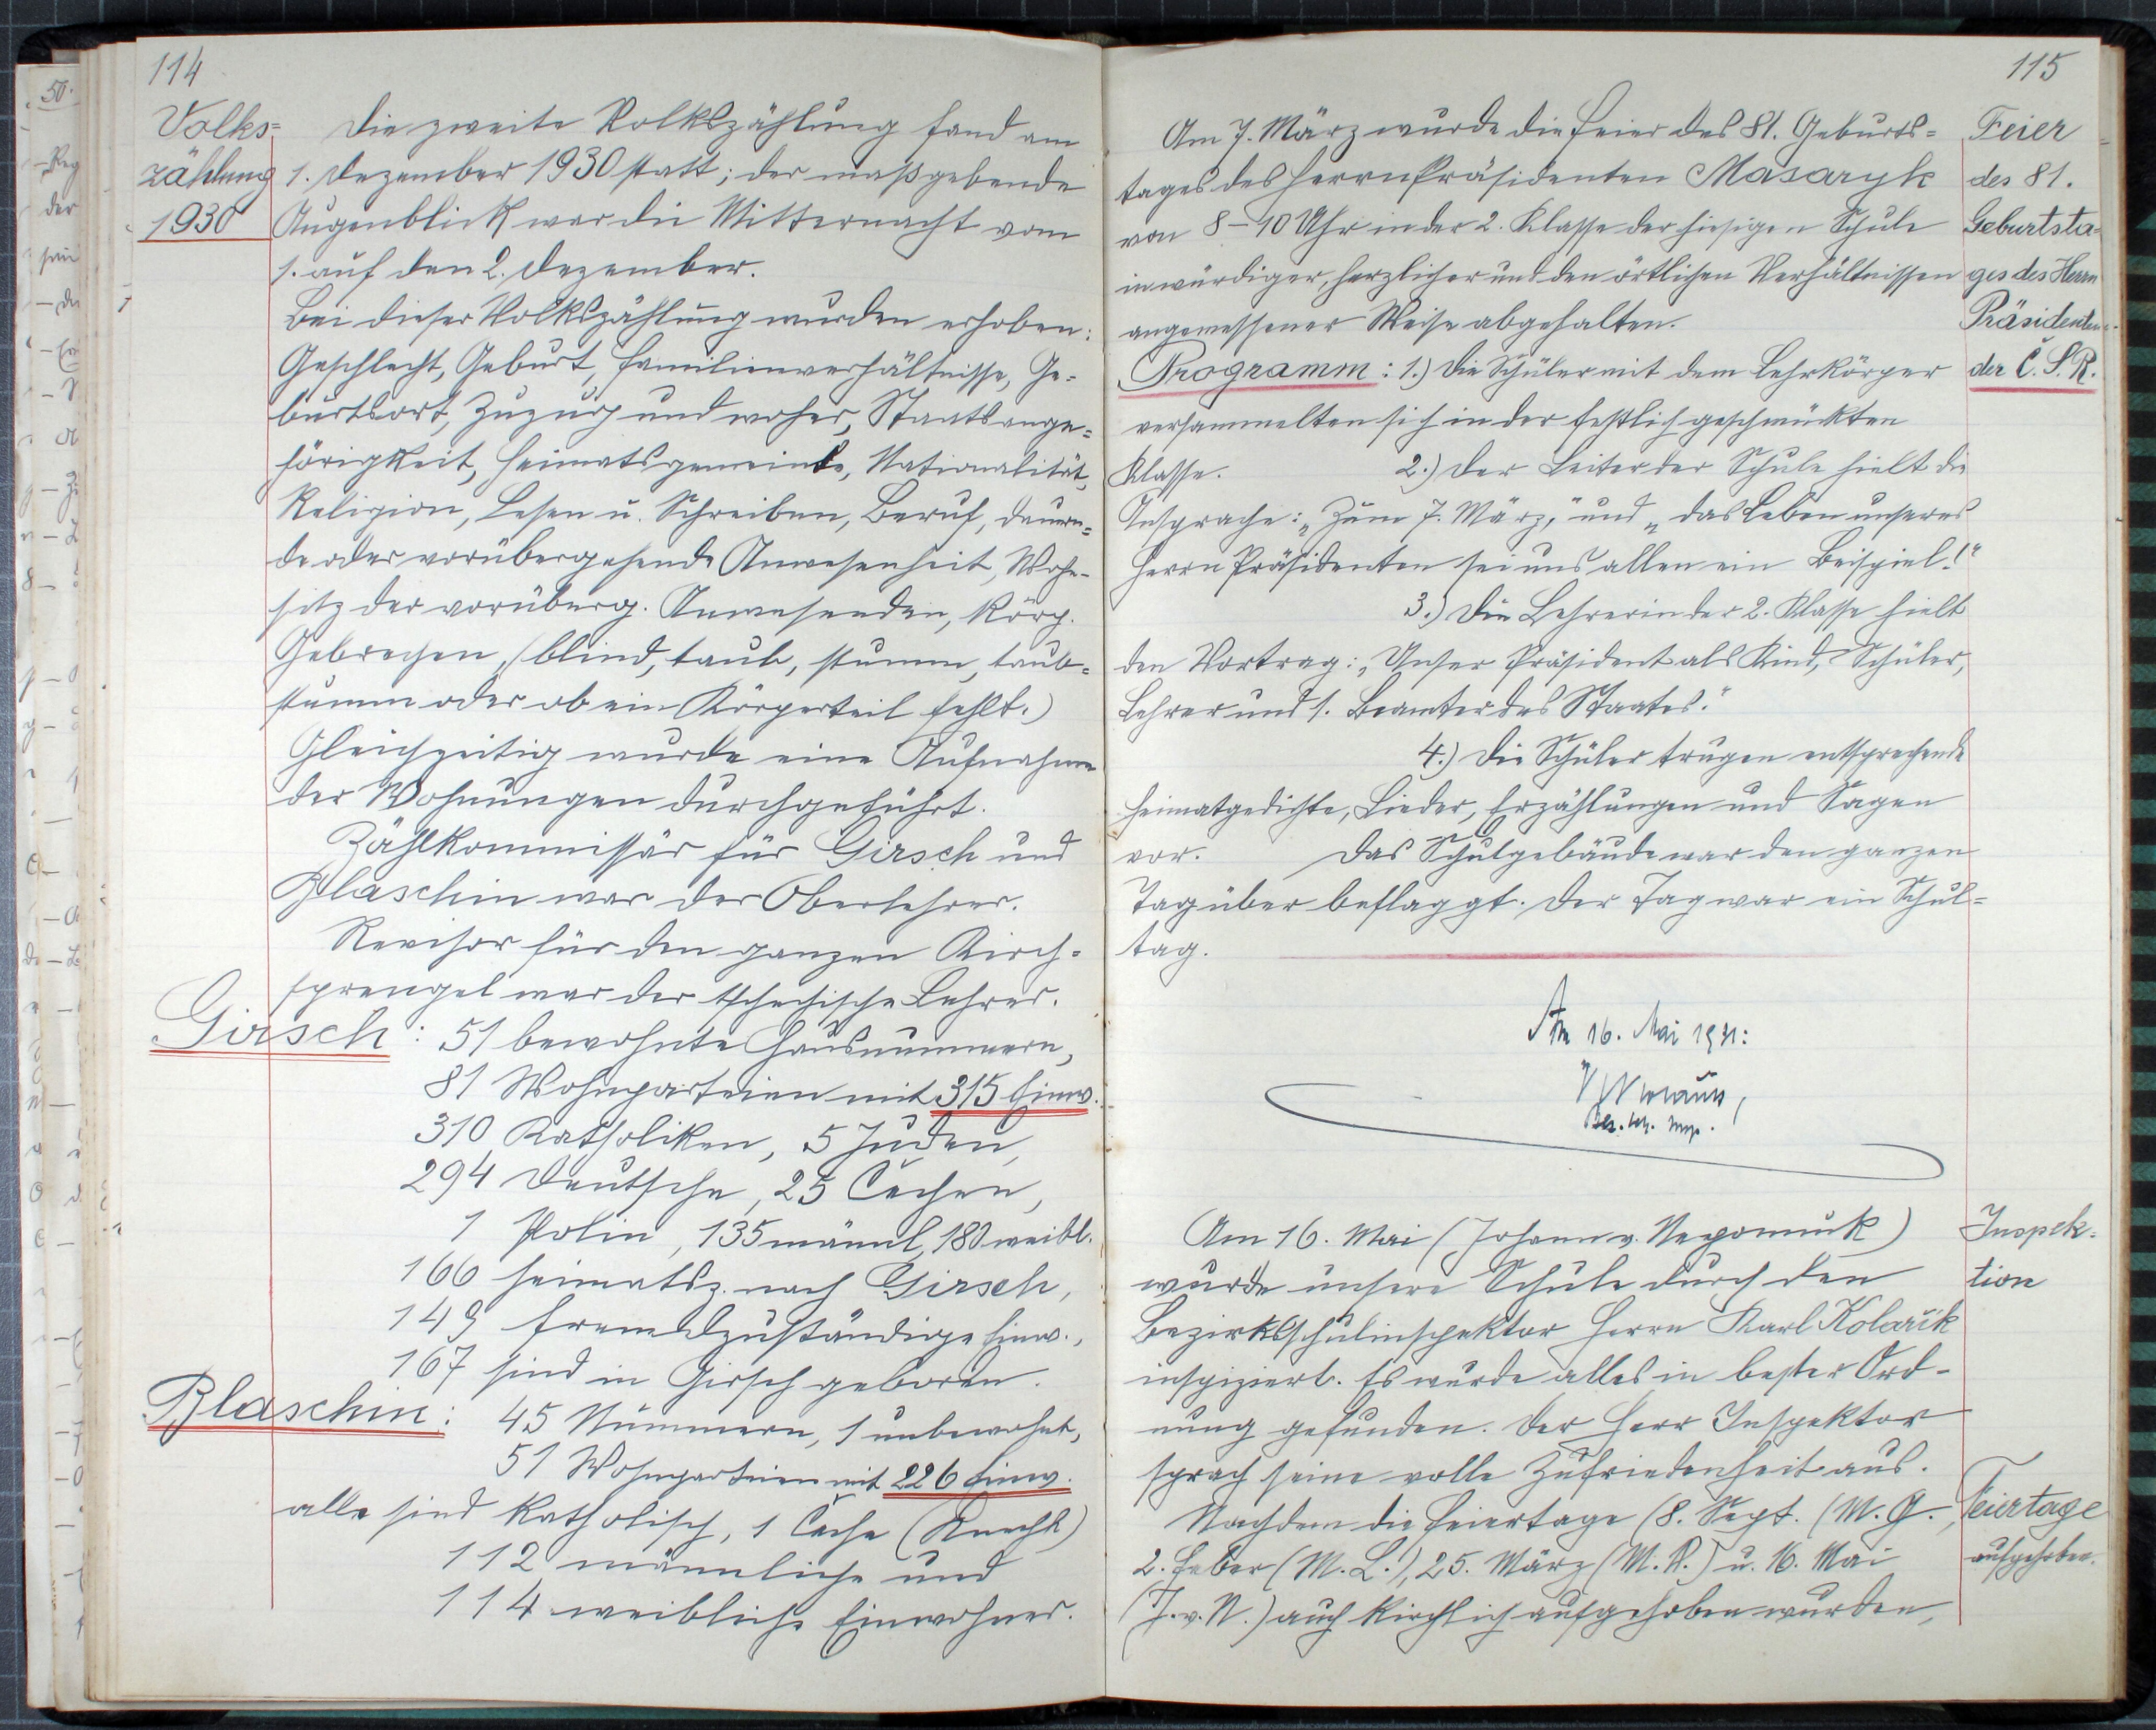 114
Volks=
zählung
1930
Die zweite Volkszählung fand am
1. Dezember 1930 statt; der maßgebende
Augenblick war die Mitternacht vom
1. auf den 2. Dezember.
Bei dieser Volkszählung wurden erhoben:
Geschlecht, Geburt, Familienverhältnisse, Ge=
burtsort, Zuzug und woher, Staatsange=
hörigkeit, Heimatsgemeinde, Nationalität,
Religion, Lesen u. Schreiben, Beruf, dauern=
de oder vorübergehende Anwesenheit, Wohn-
sitz der vorüberg. Anwesenden, körp.
Gebrechen, (blind, taub, stumm, taub=
stumm oder ob ein Körperteil fehlt.)
Gleichzeitig wurde eine Aufnahme
der Wohnungen durchgeführt.
Zählkommissär für Girsch und
Blaschin war der Oberlehrer.
Revisor für den ganzen Kirch=
sprengel war der tschechische Lehrer.
Girsch: 51 bewohnte Hausnummern,
81 Wohnparteien mit 315 Einw.
310 Katholiken, 5 Juden,
294 Deutsche, 25 Čechen,
1 Polin, 135 männl, 180 weibl.
166 heimatsz. nach Girsch,
149 fremdzuständige Einw.,
167 sind in Girsch geboren.
Blaschin: 45 Nummern, 1 unbewohnt,
51 Wohnparteien mit 226 Einw.
alle sind katholisch, 1 Čeche (Knecht)
112 männliche und
114 weibliche Einwohner.
115
Am 7. März wurde die Feier des 81. Geburts=
tages des Herrn Präsidenten Masaryk
von 8–10 Uhr in der 2. Klasse der hiesigen Schule
in würdiger, herzlicher und den örtlichen Verhältnissen
angemessener Weise abgehalten.
Programm: 1.) Die Schüler mit dem Lehrkörper
versammelten sich in der festlich geschmückten
Klasse. 2.) Der Leiter der Schule hielt die
Ansprache: „Zum 7. März," und „das Leben unseres
Herrn Präsidenten sei uns allen ein Beispiel!"
3.) Die Lehrerin der 2. Klasse hielt
den Vortrag: „Unser Präsident als Kind, Schüler,
Lehrer und 1. Beamter des Staates."
4.) Die Schüler trugen entsprechende
Heimatgedichte, Lieder, Erzählungen und Sagen
vor. Das Schulgebäude war den ganzen
Tag über beflaggt. Der Tag war ein Schul=
tag.
Feier
des 81.
Geburtsta=
ges des Herrn
Präsidenten
der Č.S.R.
Am 16. Mai 1931:
Bez. sch. insp.
Am 16. Mai (Johann v. Nepomuk)
wurde unsere Schule durch den
Bezirksschulinspektor Herrn Karl Kolařik
inspiziert. Es wurde alles in bester Ord-
nung gefunden. Der Herr Inspektor
sprach seine volle Zufriedenheit aus.
Nachdem die Feiertage (8. Sept. (M. G.,
2. Feber (M. L.), 25. März (M. V.) u. 16. Mai
(J. v. N.) auch kirchlich aufgehoben wurden,
Inspek=
tion
Feiertage
aufgehoben.